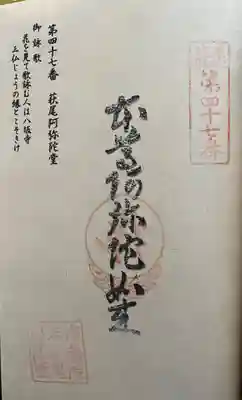 第四十七番
第四十七番　萩尾阿弥陀堂
御詠歌
花を見て歌詠む人は八坂寺
三仏じょうの縁とこそきけ
本尊阿弥陀如来